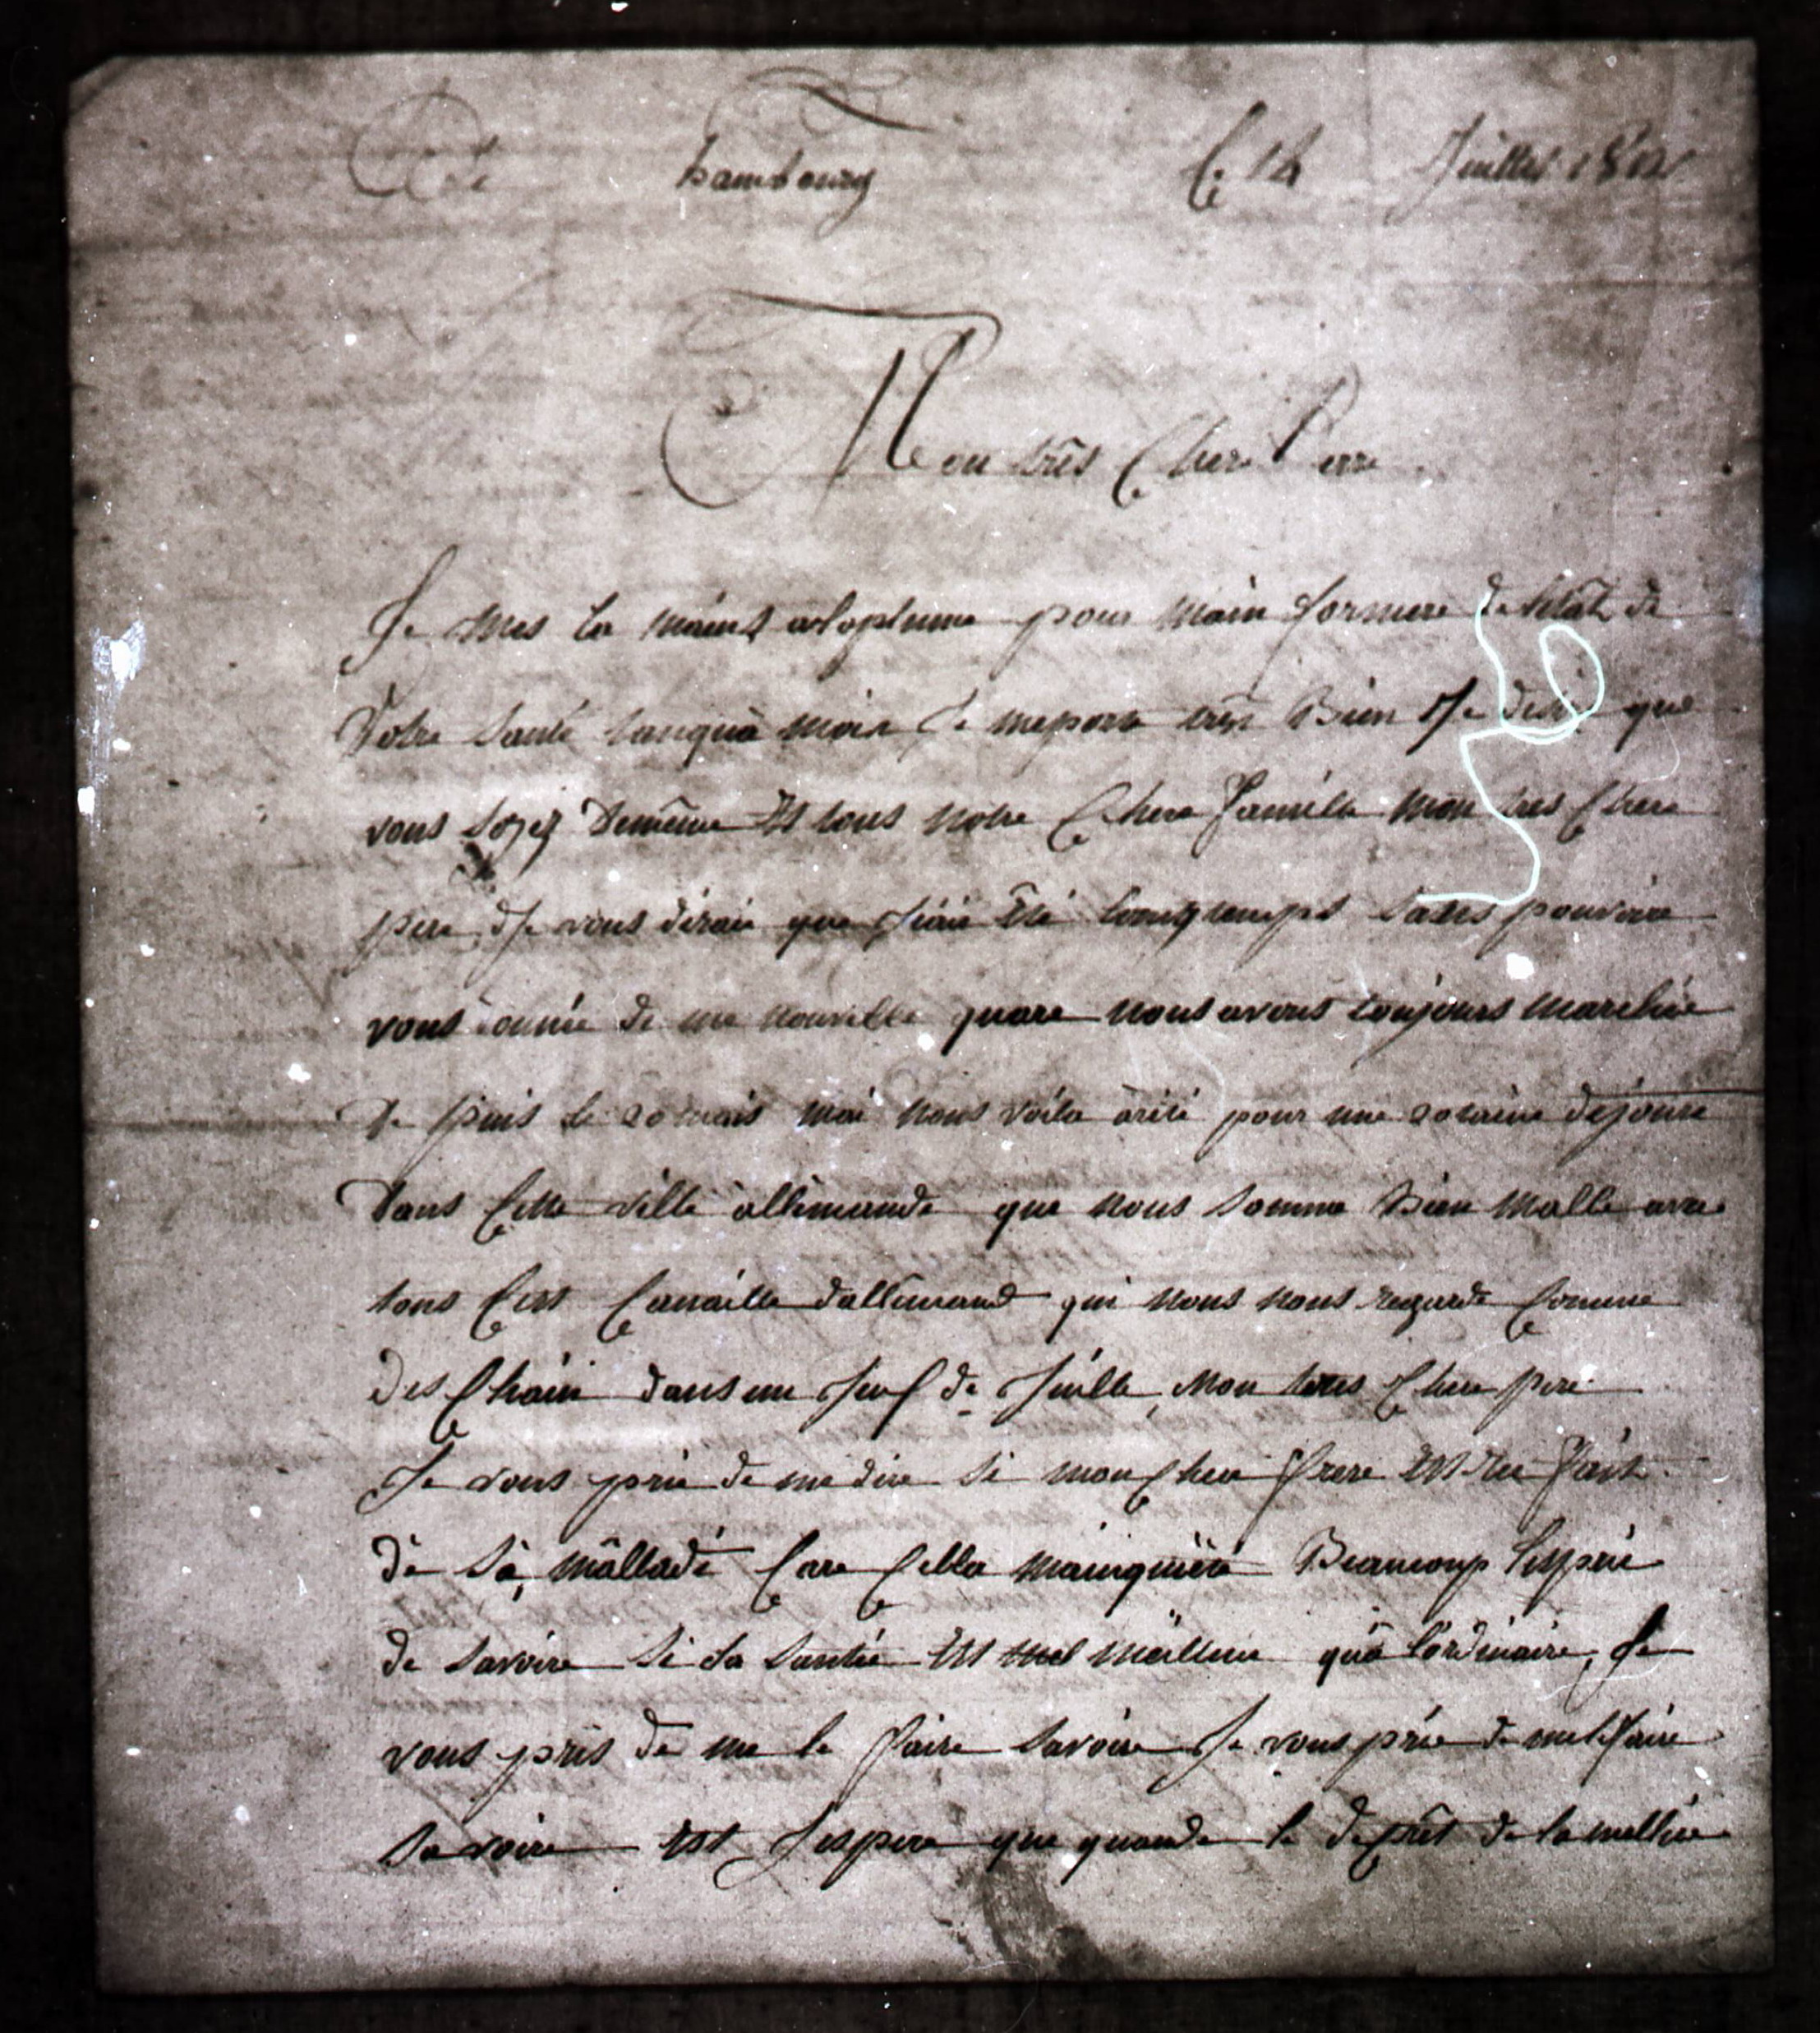 De hambourg Le 14 Juillet
Mon très Chere Perre
Je mes la mains alaplume pour main formere de létàt de
Votre santé tanquà moix Je meporte très Bien & Je desir que
vous soyez Demême Et tous notre Chere Famille Mon tres Chere
pere, Je vous dirais que Jiais Été longtemps sans pouvoire
vous donnée de me nouvelle quare nous avons toujours marchée
De puis le 20 mais moi nous voila àrité pour une 20taine dejours
Dans Cette ville allemande que nous somme Bien Malle avec
tous Cest Canaille dallemand qui nous nous regarde Comme
des Chain dans un Jeuf de quille, Mon tres Chere pere
Je vous prie de me dire si mon Cher frere Est Re fait
de Sà, mâlladé Care Cella mainquiète Beaucoup lesprie
de savoire si sa santée Est meilleure quà lordinaire, Je
vous pris de me le faire savoire Je vous prie de melefaire
savoire Est Jespere que quande le de la